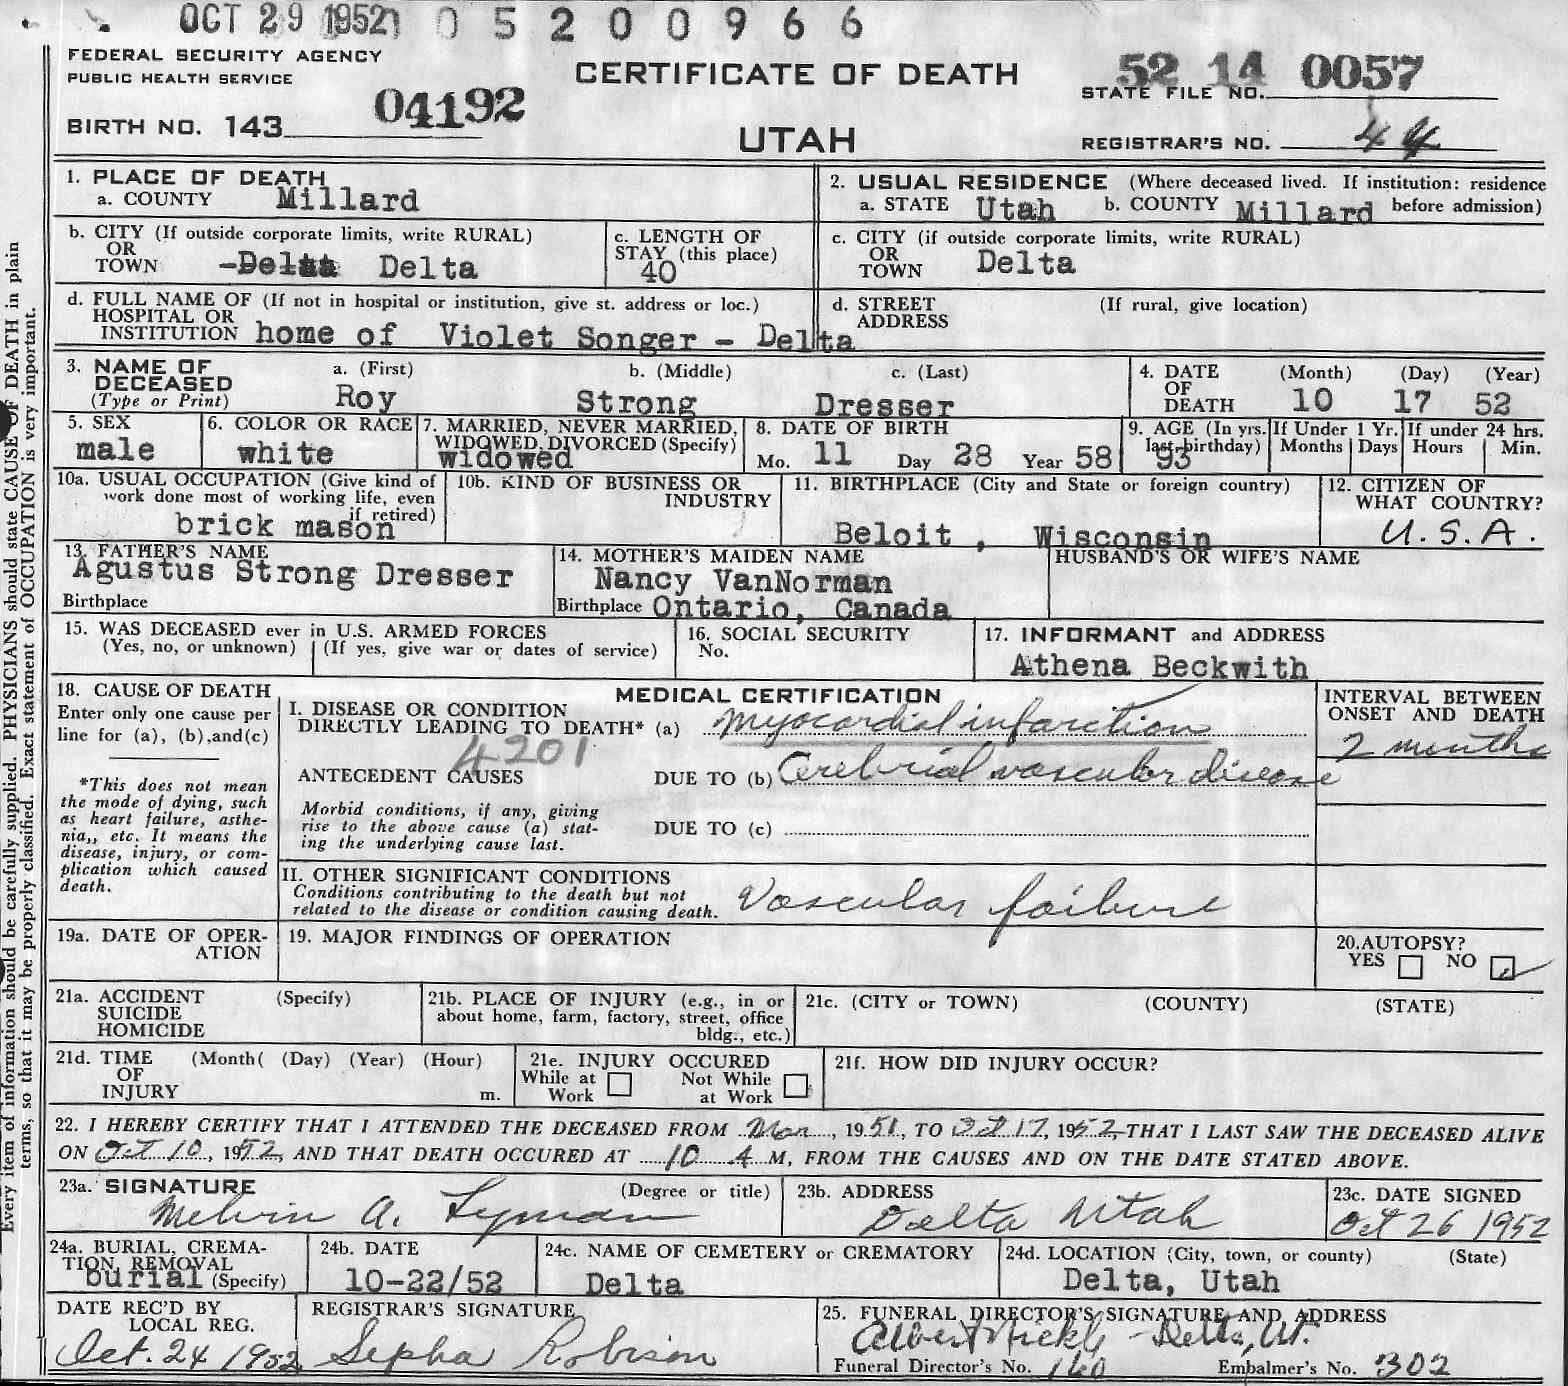 OCT 29 1952 0 5 2 0 0 9 6 6
FEDERAL SECURITY AGENCY
PUBLIC HEALTH SERVICE
CERTIFICATE OF DEATH
52 14 0057
STATE FILE NO.
BIRTH NO. 143 04192
UTAH
REGISTRAR'S NO.
1. PLACE OF DEATH
a. COUNTY Millard
2. USUAL RESIDENCE (Where deceased lived. If institution: residence
a. STATE Utah b. COUNTY Millard before admission)
b. CITY (If outside corporate limits, write RURAL)
OR
TOWN Delta
c. LENGTH OF
STAY (this place)
40
c. CITY (if outside corporate limits, write RURAL)
OR
TOWN Delta
d. FULL NAME OF (If not in hospital or institution, give st. address or loc.)
HOSPITAL OR
INSTITUTION home of Violet Songer - Delta
d. STREET (If rural, give location)
ADDRESS
3. NAME OF a. (First) b. (Middle) c. (Last)
DECEASED
(Type or Print) Roy Strong Dresser
4. DATE (Month) (Day) (Year)
OF
DEATH 10 17 52
5. SEX
male
6. COLOR OR RACE
white
7. MARRIED, NEVER MARRIED,
WIDOWED, DIVORCED (Specify)
widowed
8. DATE OF BIRTH
Mo. 11 Day 28 Year 58
9. AGE (In yrs.
last birthday)
93
If Under 1 Yr.
Months Days
If under 24 hrs.
Hours Min.
10a. USUAL OCCUPATION (Give kind of
work done most of working life, even
if retired)
brick mason
10b. KIND OF BUSINESS OR
INDUSTRY
11. BIRTHPLACE (City and State or foreign country)
Beloit , Wisconsin
12. CITIZEN OF
WHAT COUNTRY?
U.S.A.
13. FATHER'S NAME
Agustus Strong Dresser
Birthplace
14. MOTHER'S MAIDEN NAME
Nancy VanNorman
Birthplace Ontario, Canada
HUSBAND'S OR WIFE'S NAME
15. WAS DECEASED ever in U.S. ARMED FORCES
(Yes, no, or unknown) (If yes, give war or dates of service)
16. SOCIAL SECURITY
No.
17. INFORMANT and ADDRESS
Athena Beckwith
18. CAUSE OF DEATH
Enter only one cause per
line for (a), (b),and(c)
*This does not mean
the mode of dying, such
as heart failure, asthe-
nia,, etc. It means the
disease, injury, or com-
plication which caused
death.
MEDICAL CERTIFICATION
I. DISEASE OR CONDITION
DIRECTLY LEADING TO DEATH* (a) Myocardial infarction
4201
ANTECEDENT CAUSES DUE TO (b) Cerebrial vascular disease
Morbid conditions, if any, giving
rise to the above cause (a) stat-
ing the underlying cause last.
DUE TO (c)
INTERVAL BETWEEN
ONSET AND DEATH
2 months
II. OTHER SIGNIFICANT CONDITIONS
Conditions contributing to the death but not
related to the disease or condition causing death.
Vascular failure
19a. DATE OF OPER-
ATION
19. MAJOR FINDINGS OF OPERATION
20. AUTOPSY?
YES NO
21a. ACCIDENT (Specify)
SUICIDE
HOMICIDE
21b. PLACE OF INJURY (e.g., in or
about home, farm, factory, street, office
bldg., etc.)
21c. (CITY or TOWN) (COUNTY) (STATE)
21d. TIME (Month( (Day) (Year) (Hour)
OF
INJURY m.
21e. INJURY OCCURED
While at Not While
Work at Work
21f. HOW DID INJURY OCCUR?
22. I HEREBY CERTIFY THAT I ATTENDED THE DECEASED FROM Mar, 1951, TO Oct 17, 1952, THAT I LAST SAW THE DECEASED ALIVE
ON Oct 10, 1952, AND THAT DEATH OCCURED AT 10 A M, FROM THE CAUSES AND ON THE DATE STATED ABOVE.
23a. SIGNATURE (Degree or title)
Melvin A. Lyman
23b. ADDRESS
Delta Utah
23c. DATE SIGNED
Oct 26 1952
24a. BURIAL, CREMA-
TION, REMOVAL
burial (Specify)
24b. DATE
10-22/52
24c. NAME OF CEMETERY or CREMATORY
Delta
24d. LOCATION (City, town, or county) (State)
Delta, Utah
DATE REC'D BY
LOCAL REG.
Oct. 24 1952
REGISTRAR'S SIGNATURE
Sepha Robison
25. FUNERAL DIRECTOR'S SIGNATURE AND ADDRESS
Albert Nickle - Delta, Ut.
Funeral Director's No. 160 Embalmer's No. 302
Every item of information should be carefully supplied. PHYSICIANS should state CAUSE OF DEATH in plain
terms, so that it may be properly classified. Exact statement of OCCUPATION is very important.